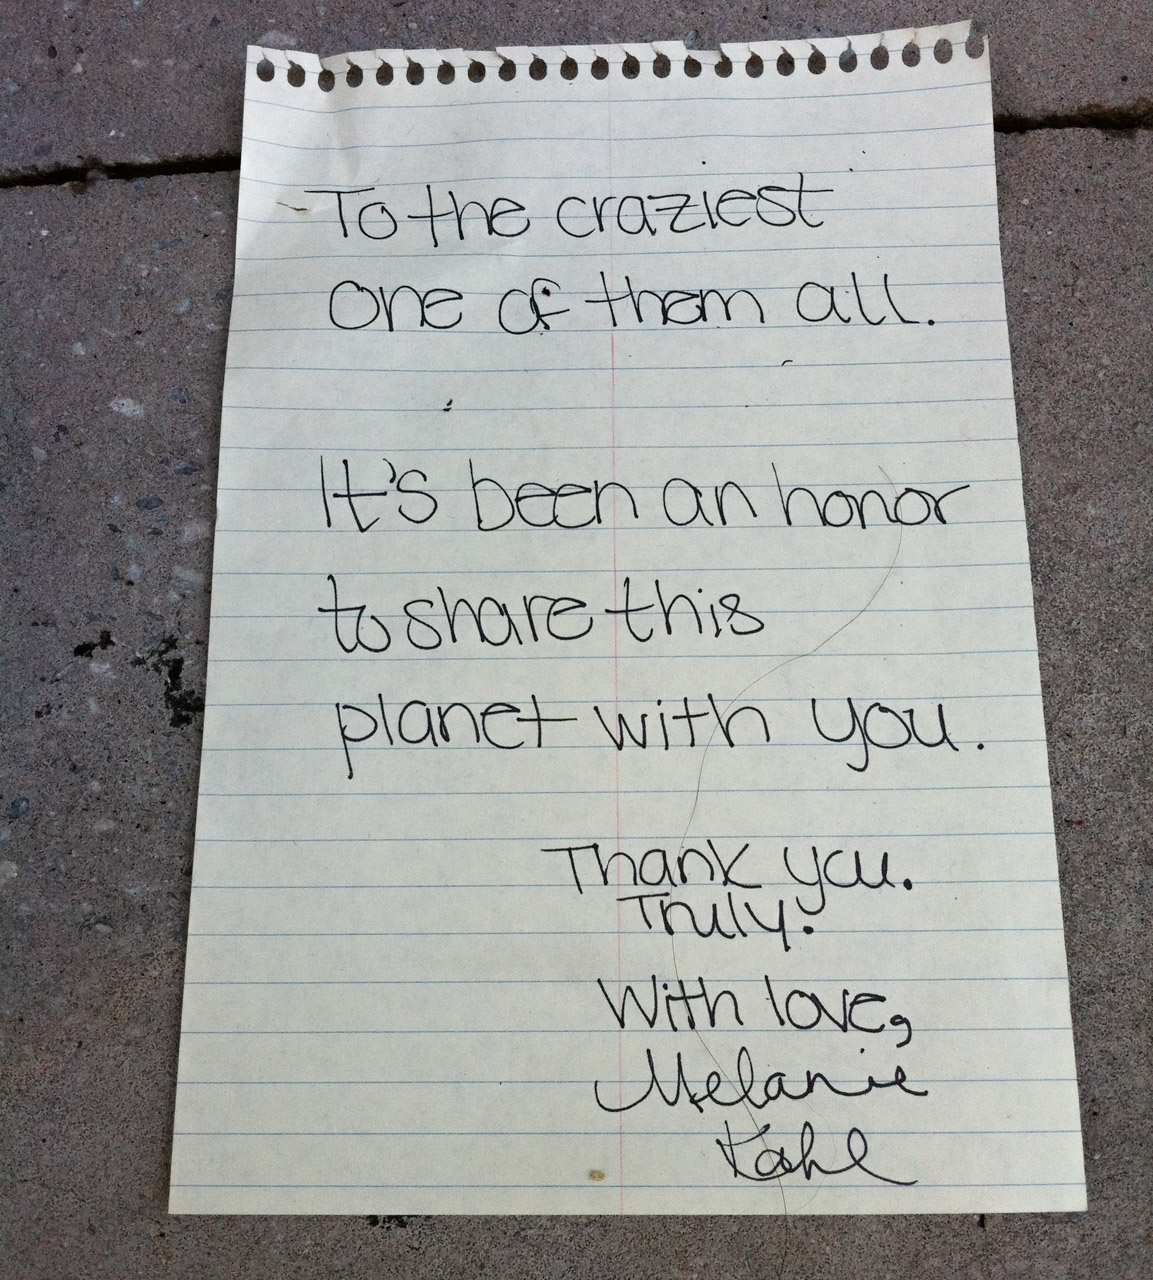 To the craziest
one of them all.
It's been an honor
to share this
planet with you.
Thank you.
Truly.
With love,
Melanie
Kahl